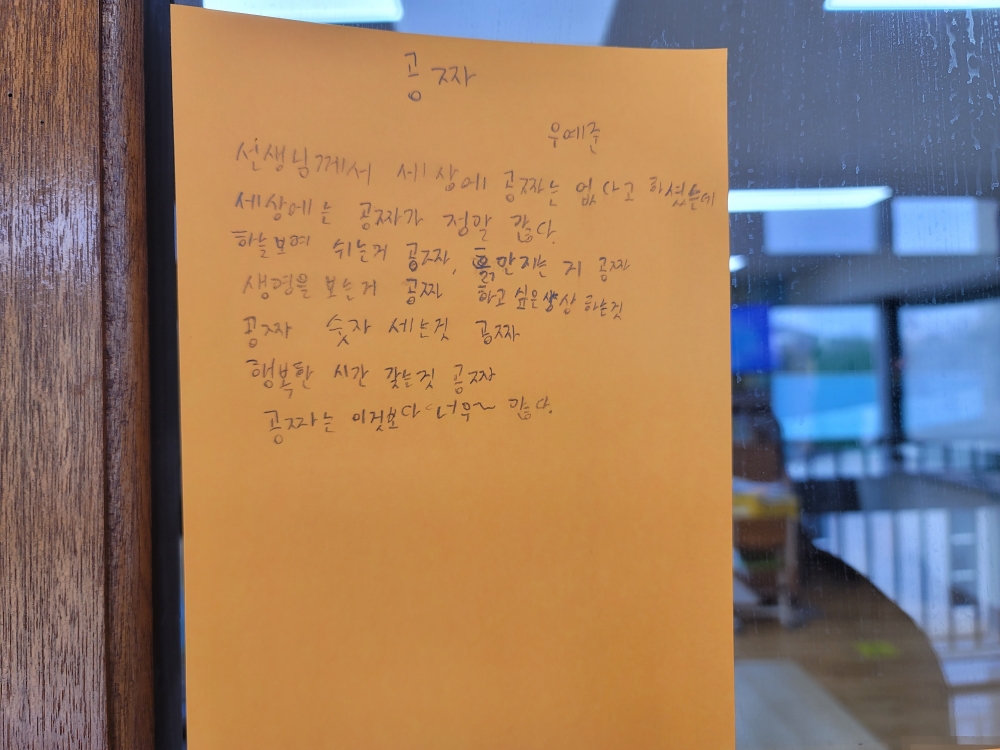 공짜
우예준
선생님께서 세상에 공짜는 없다고 하셨는데
세상에는 공짜가 정말 많다.
하늘보며 쉬는거 공짜, 흙만지는 거 공짜
생명을 보는거 공짜 하고 싶은생상 하는것
공짜 숫자 세는것 공짜
행복한 시간 갖는것 공짜
공짜는 이것보다 너무~ 많다.